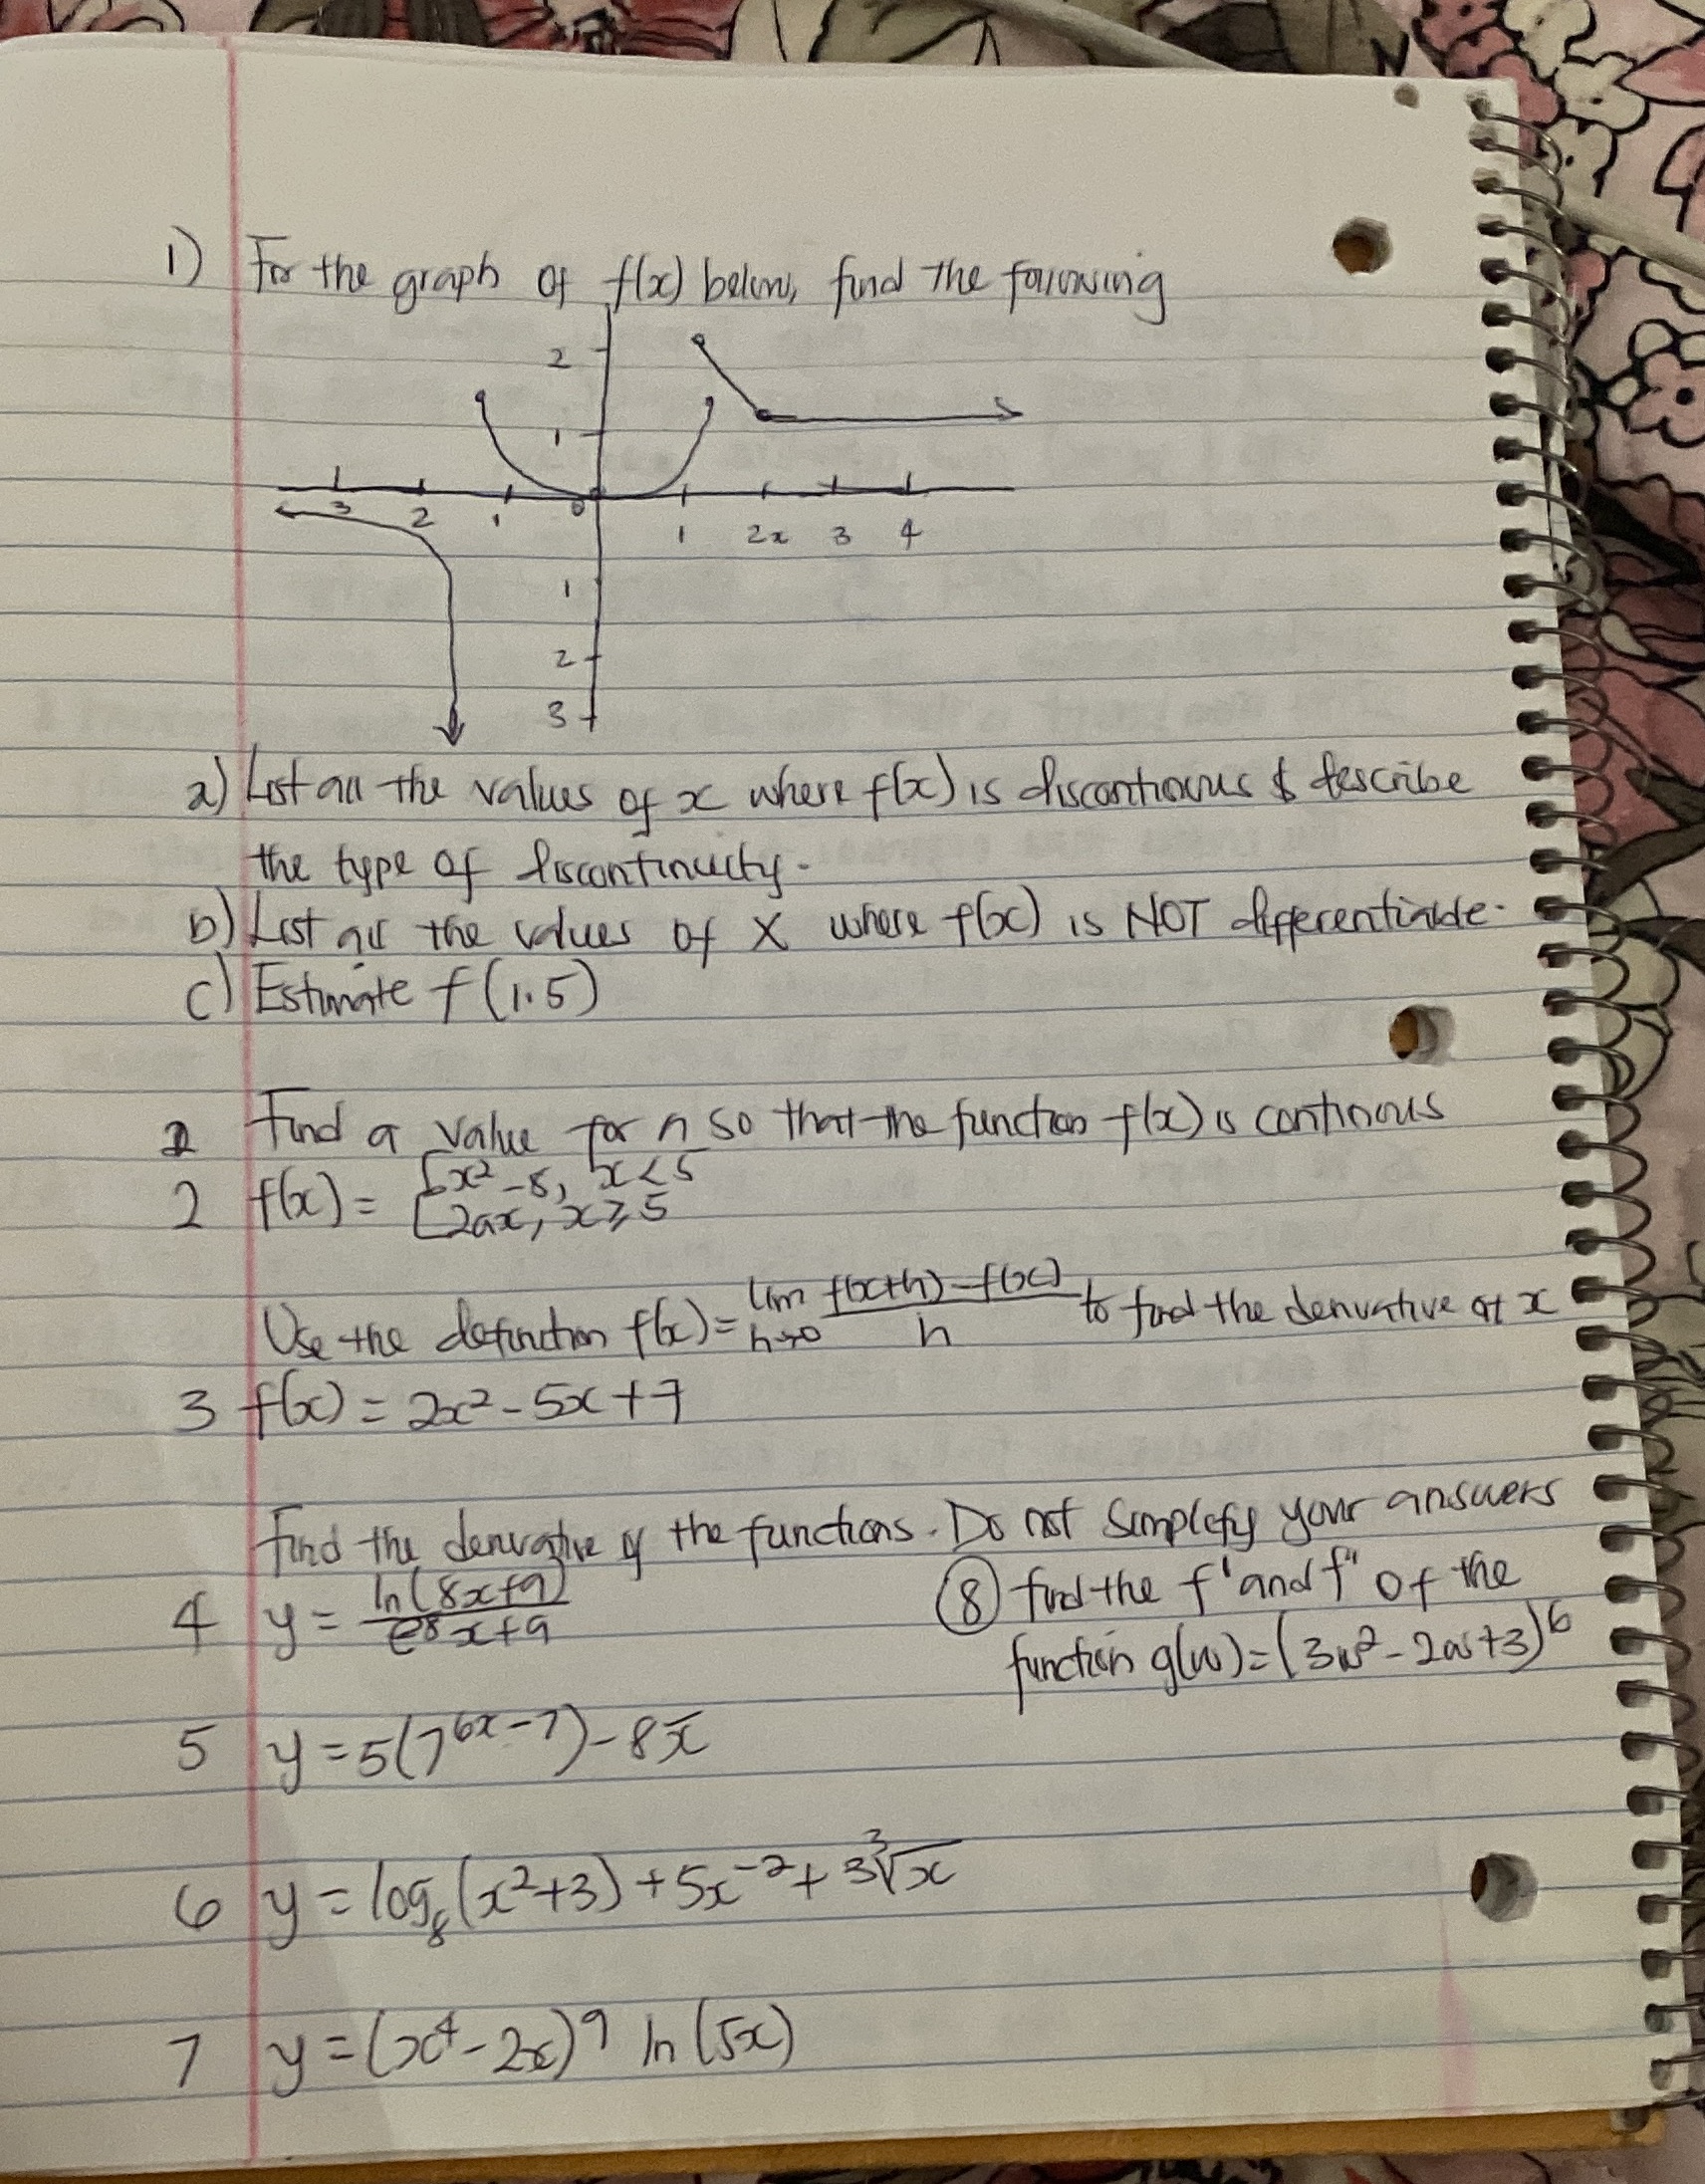 1) For the graph of f(x) below, find the following
2
1
3 2 1 0 1 2x 3 4
1
2
3
a) List all the values of x where f(x) is discontinous & describe
the type of discontinuity.
b) List all the values of X where f(x) is NOT differentiable.
c) Estimate f(1.5)
2 Find a value for n so that the function f(x) is continous
2 f(x) = [x² - 8, x < 5
[2ax, x ≥ 5
Use the definition f(x) = lim h→0 f(x+h) - f(x) / h to find the derivative at x
3 f(x) = 2x² - 5x + 7
Find the derivative of the functions. Do not simplify your answers
4 y = ln(8x+9) / e⁸x+9
8 find the f' and f" of the
function g(w) = (3w² - 2w + 3)⁶
5 y = 5(7^6x-7) - 8x
6 y = log₈(x²+3) + 5x⁻² + 3∛x
7 y = (x⁴ - 2x)⁹ ln(5x)